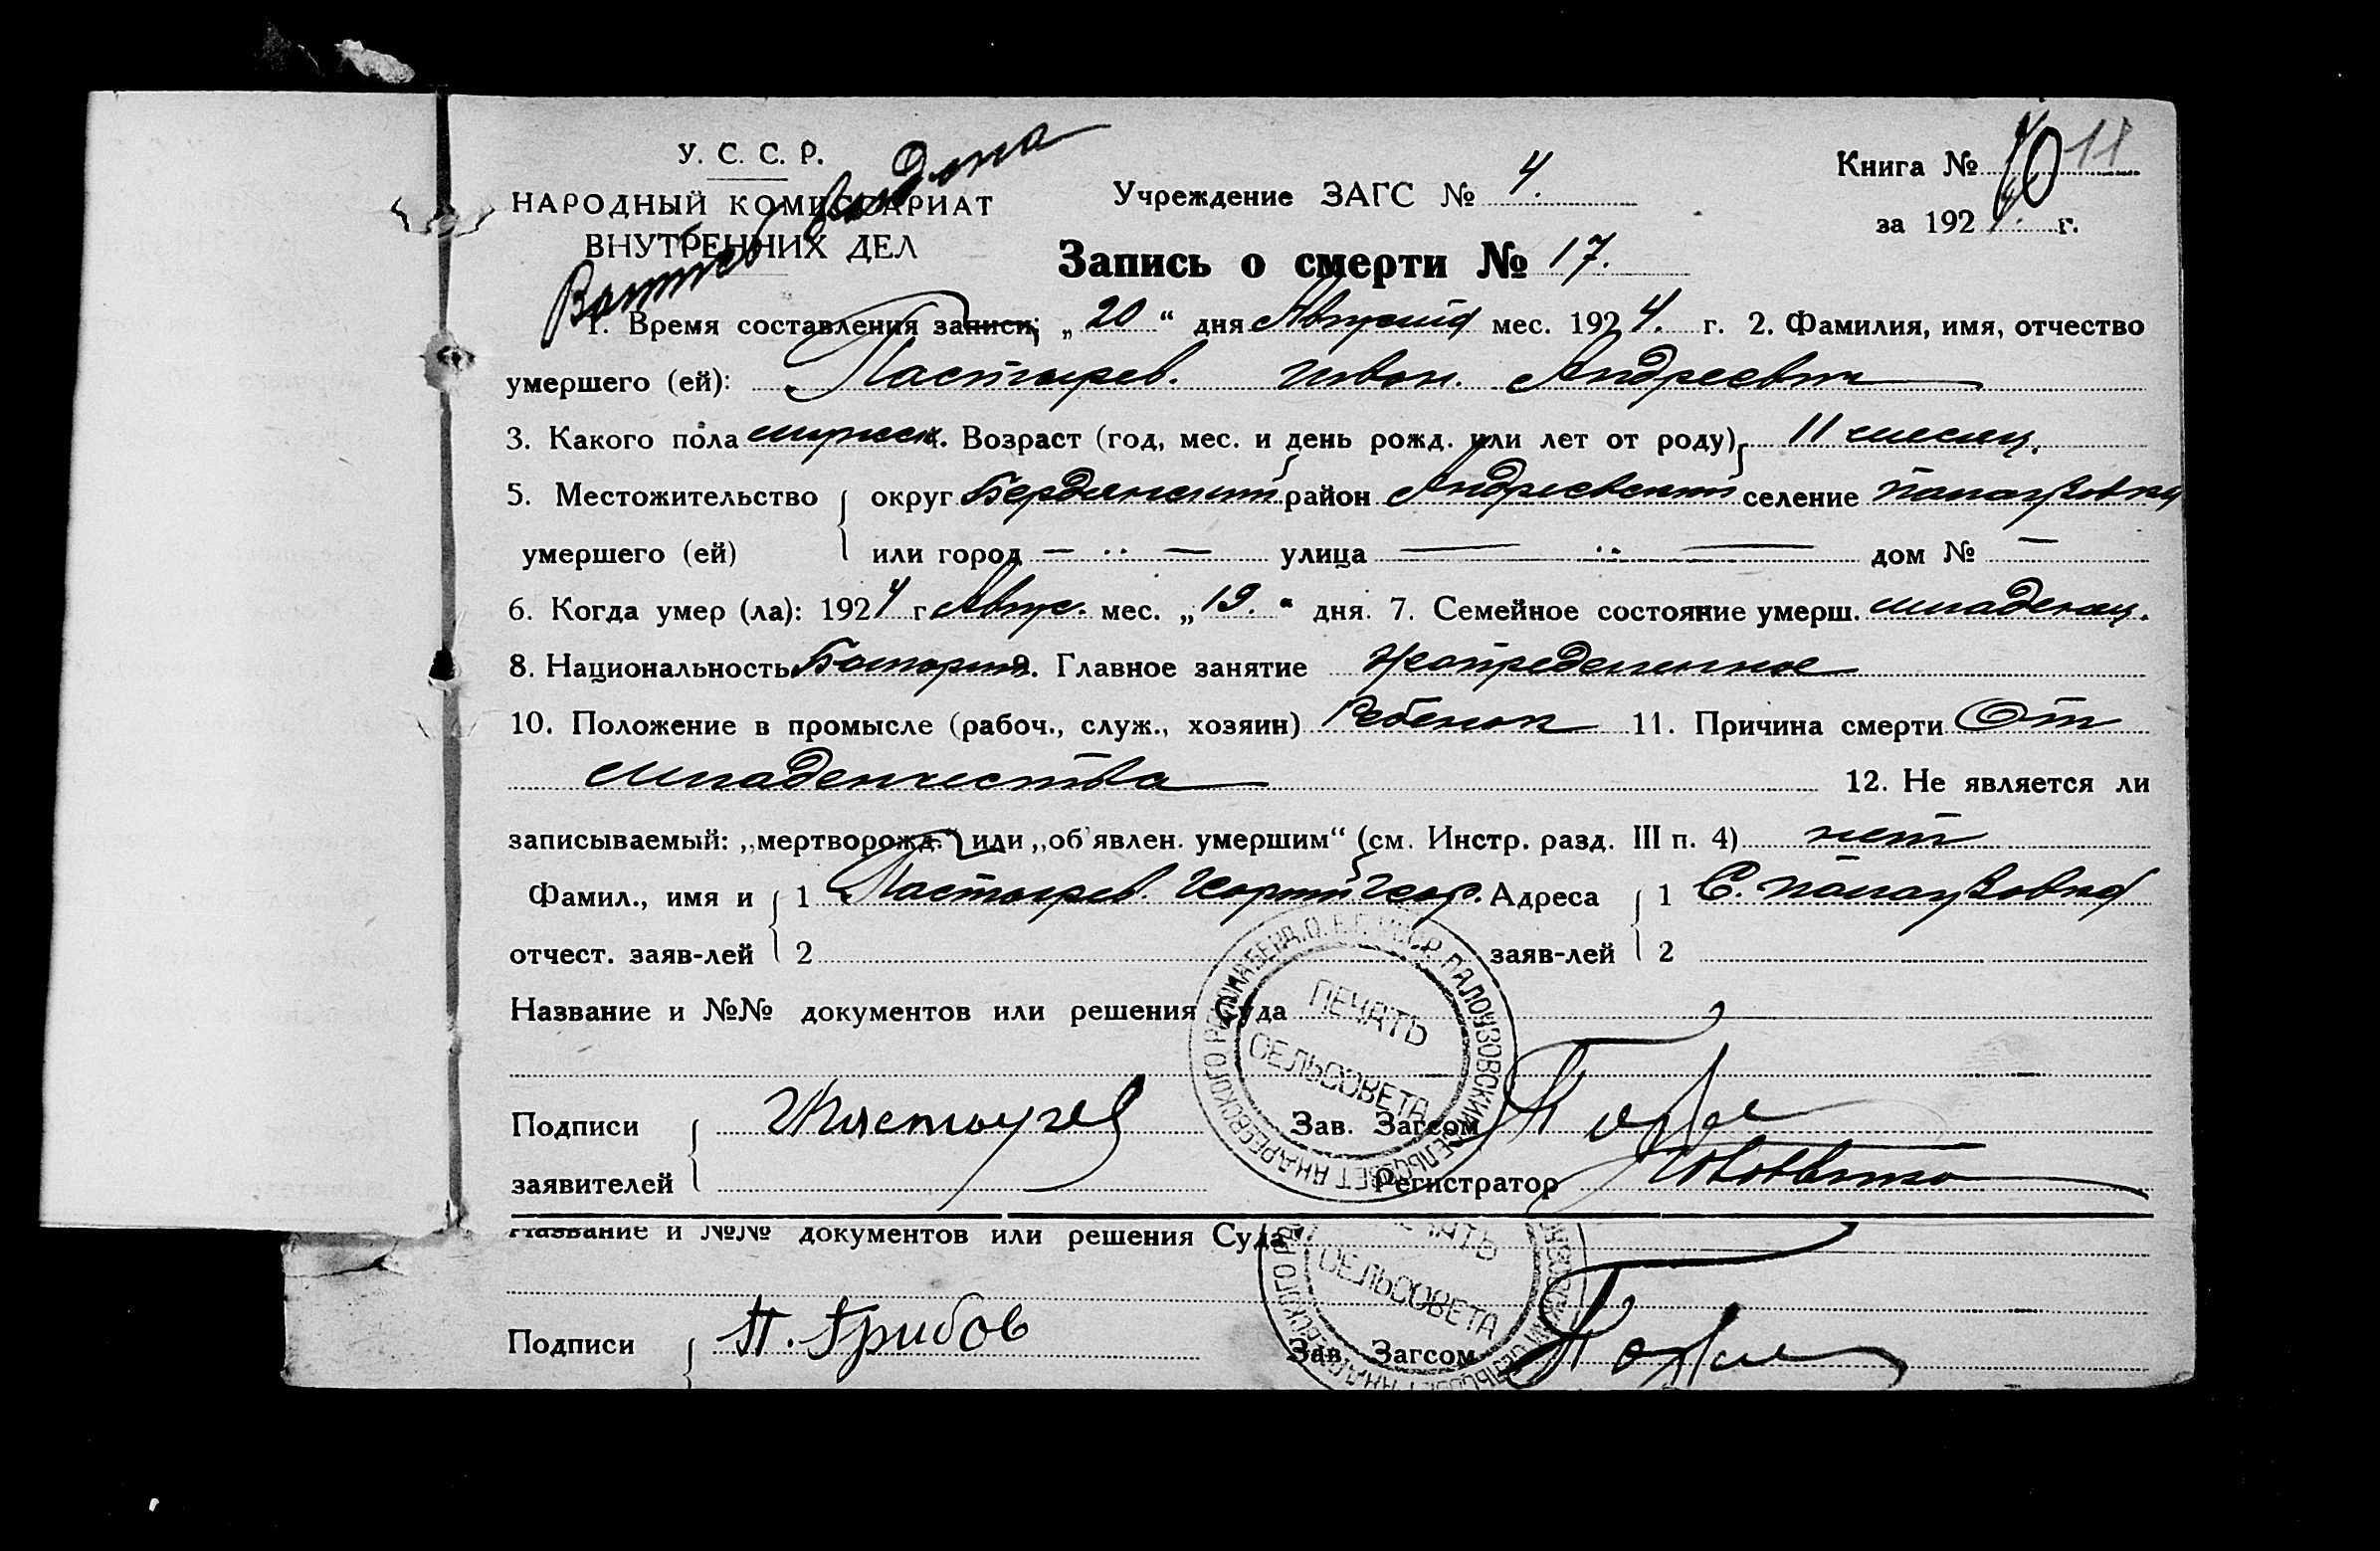 У. С. С. Р.
НАРОДНЫЙ КОМИССАРИАТ
ВНУТРЕННИХ ДЕЛ
Учреждение ЗАГС № 4.
Книга № 10 11
за 1924. г.
Запись о смерти № 17.
1. Время составления записи; „20“ дня Августа мес. 1924. г. 2. Фамилия, имя, отчество
умершего (ей): Пастырев. Иван. Андреевич
3. Какого пола мужеск. Возраст (год, мес. и день рожд. или лет от роду) 11 месяц.
5. Местожительство округ Бердянский район Андреевский селение Палаузовка
умершего (ей) или город — ·· — улица — ·· — дом № —
6. Когда умер (ла): 1924 г. Авгус. мес. „19.“ дня. 7. Семейное состояние умерш. младенец.
8. Национальность Болгарин 9. Главное занятие
10. Положение в промысле (рабоч., служ., хозяин) Ребенок 11. Причина смерти От
младенчества 12. Не является ли
записываемый: „мертворожд.“ или „об'явлен. умершим“ (см. Инстр. разд. III п. 4) нет
Фамил., имя и 1 Пастырев. Георгий Геор. Адреса 1 С. Палаузовка
отчест. заяв-лей 2 заяв-лей 2
Название и №№ документов или решения Суда
ПЕЧАТЬ
СЕЛЬСОВЕТА
Подписи Пастырев Зав. Загсом
заявителей Регистратор
Название и №№ документов или решения Суда
СЕЛЬСОВЕТА
Подписи П. Грибов Зав. Загсом